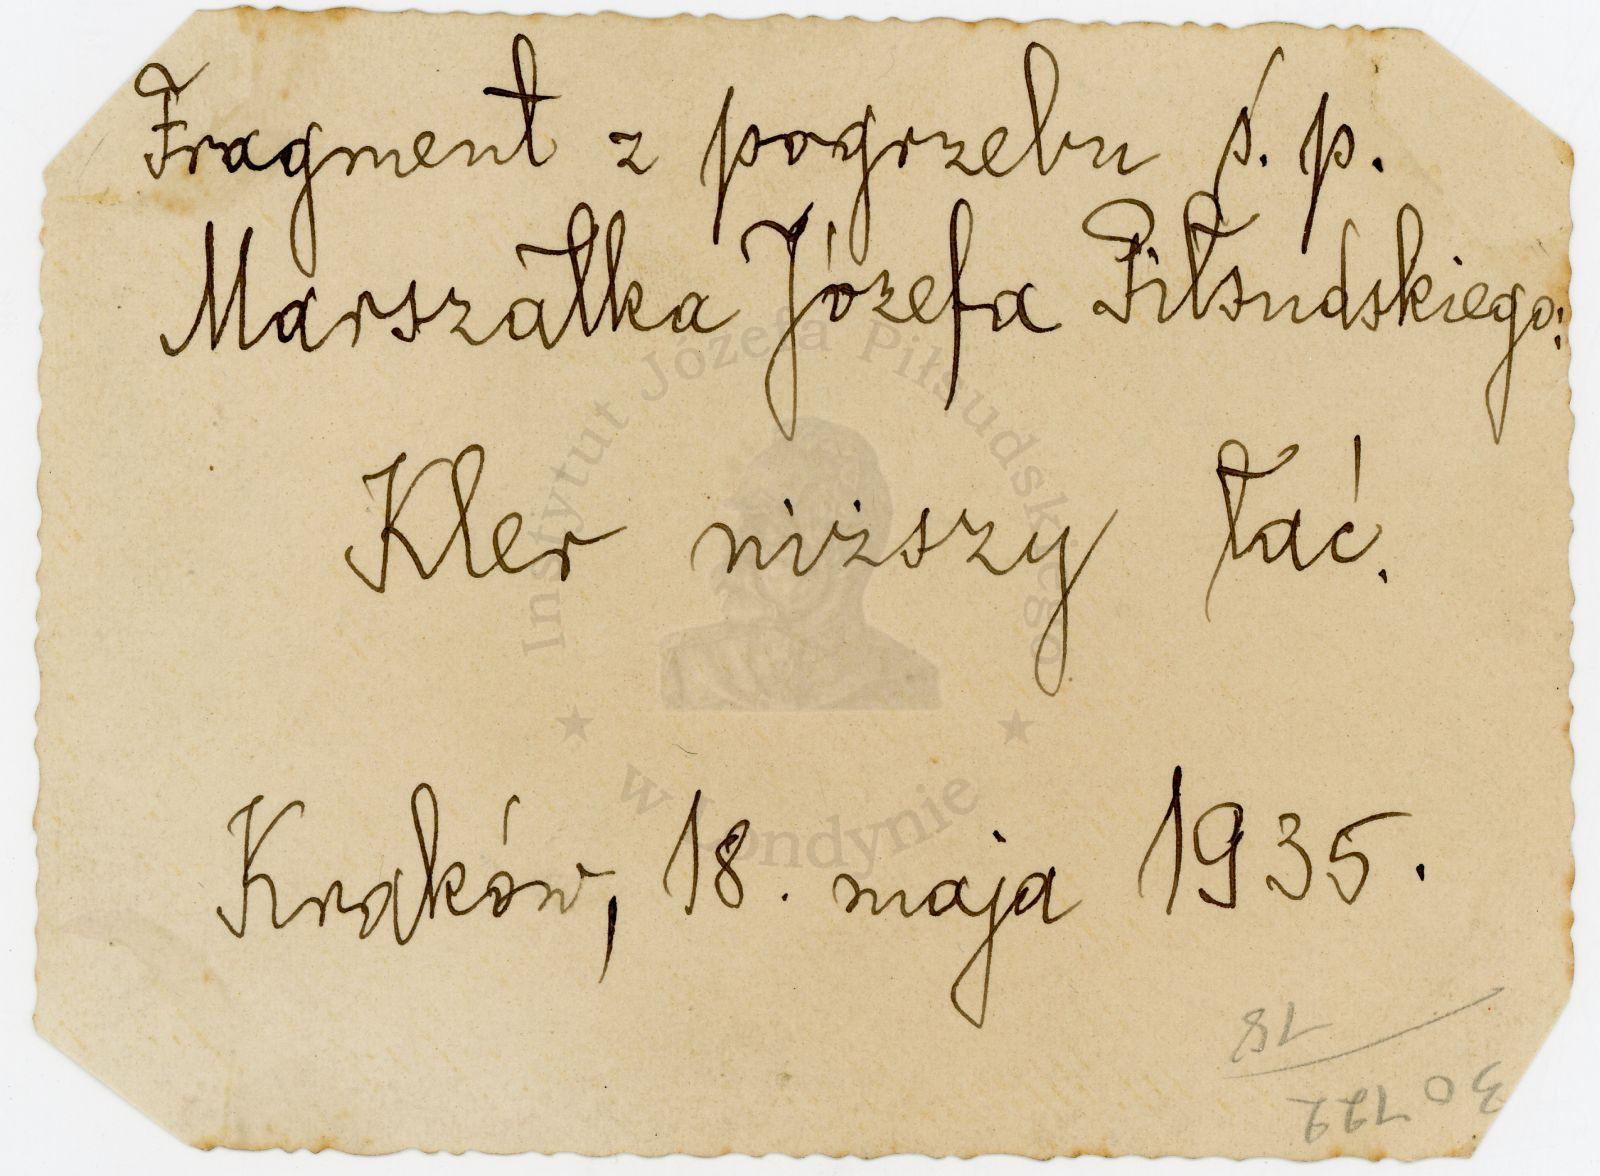 Fragment z pogrzebu ś. p.
Marszałka Józefa Piłsudskiego:
Kler niższy łać.
Kraków, 18. maja 1935.
Instytut Józefa Piłsudskiego
w Londynie
18